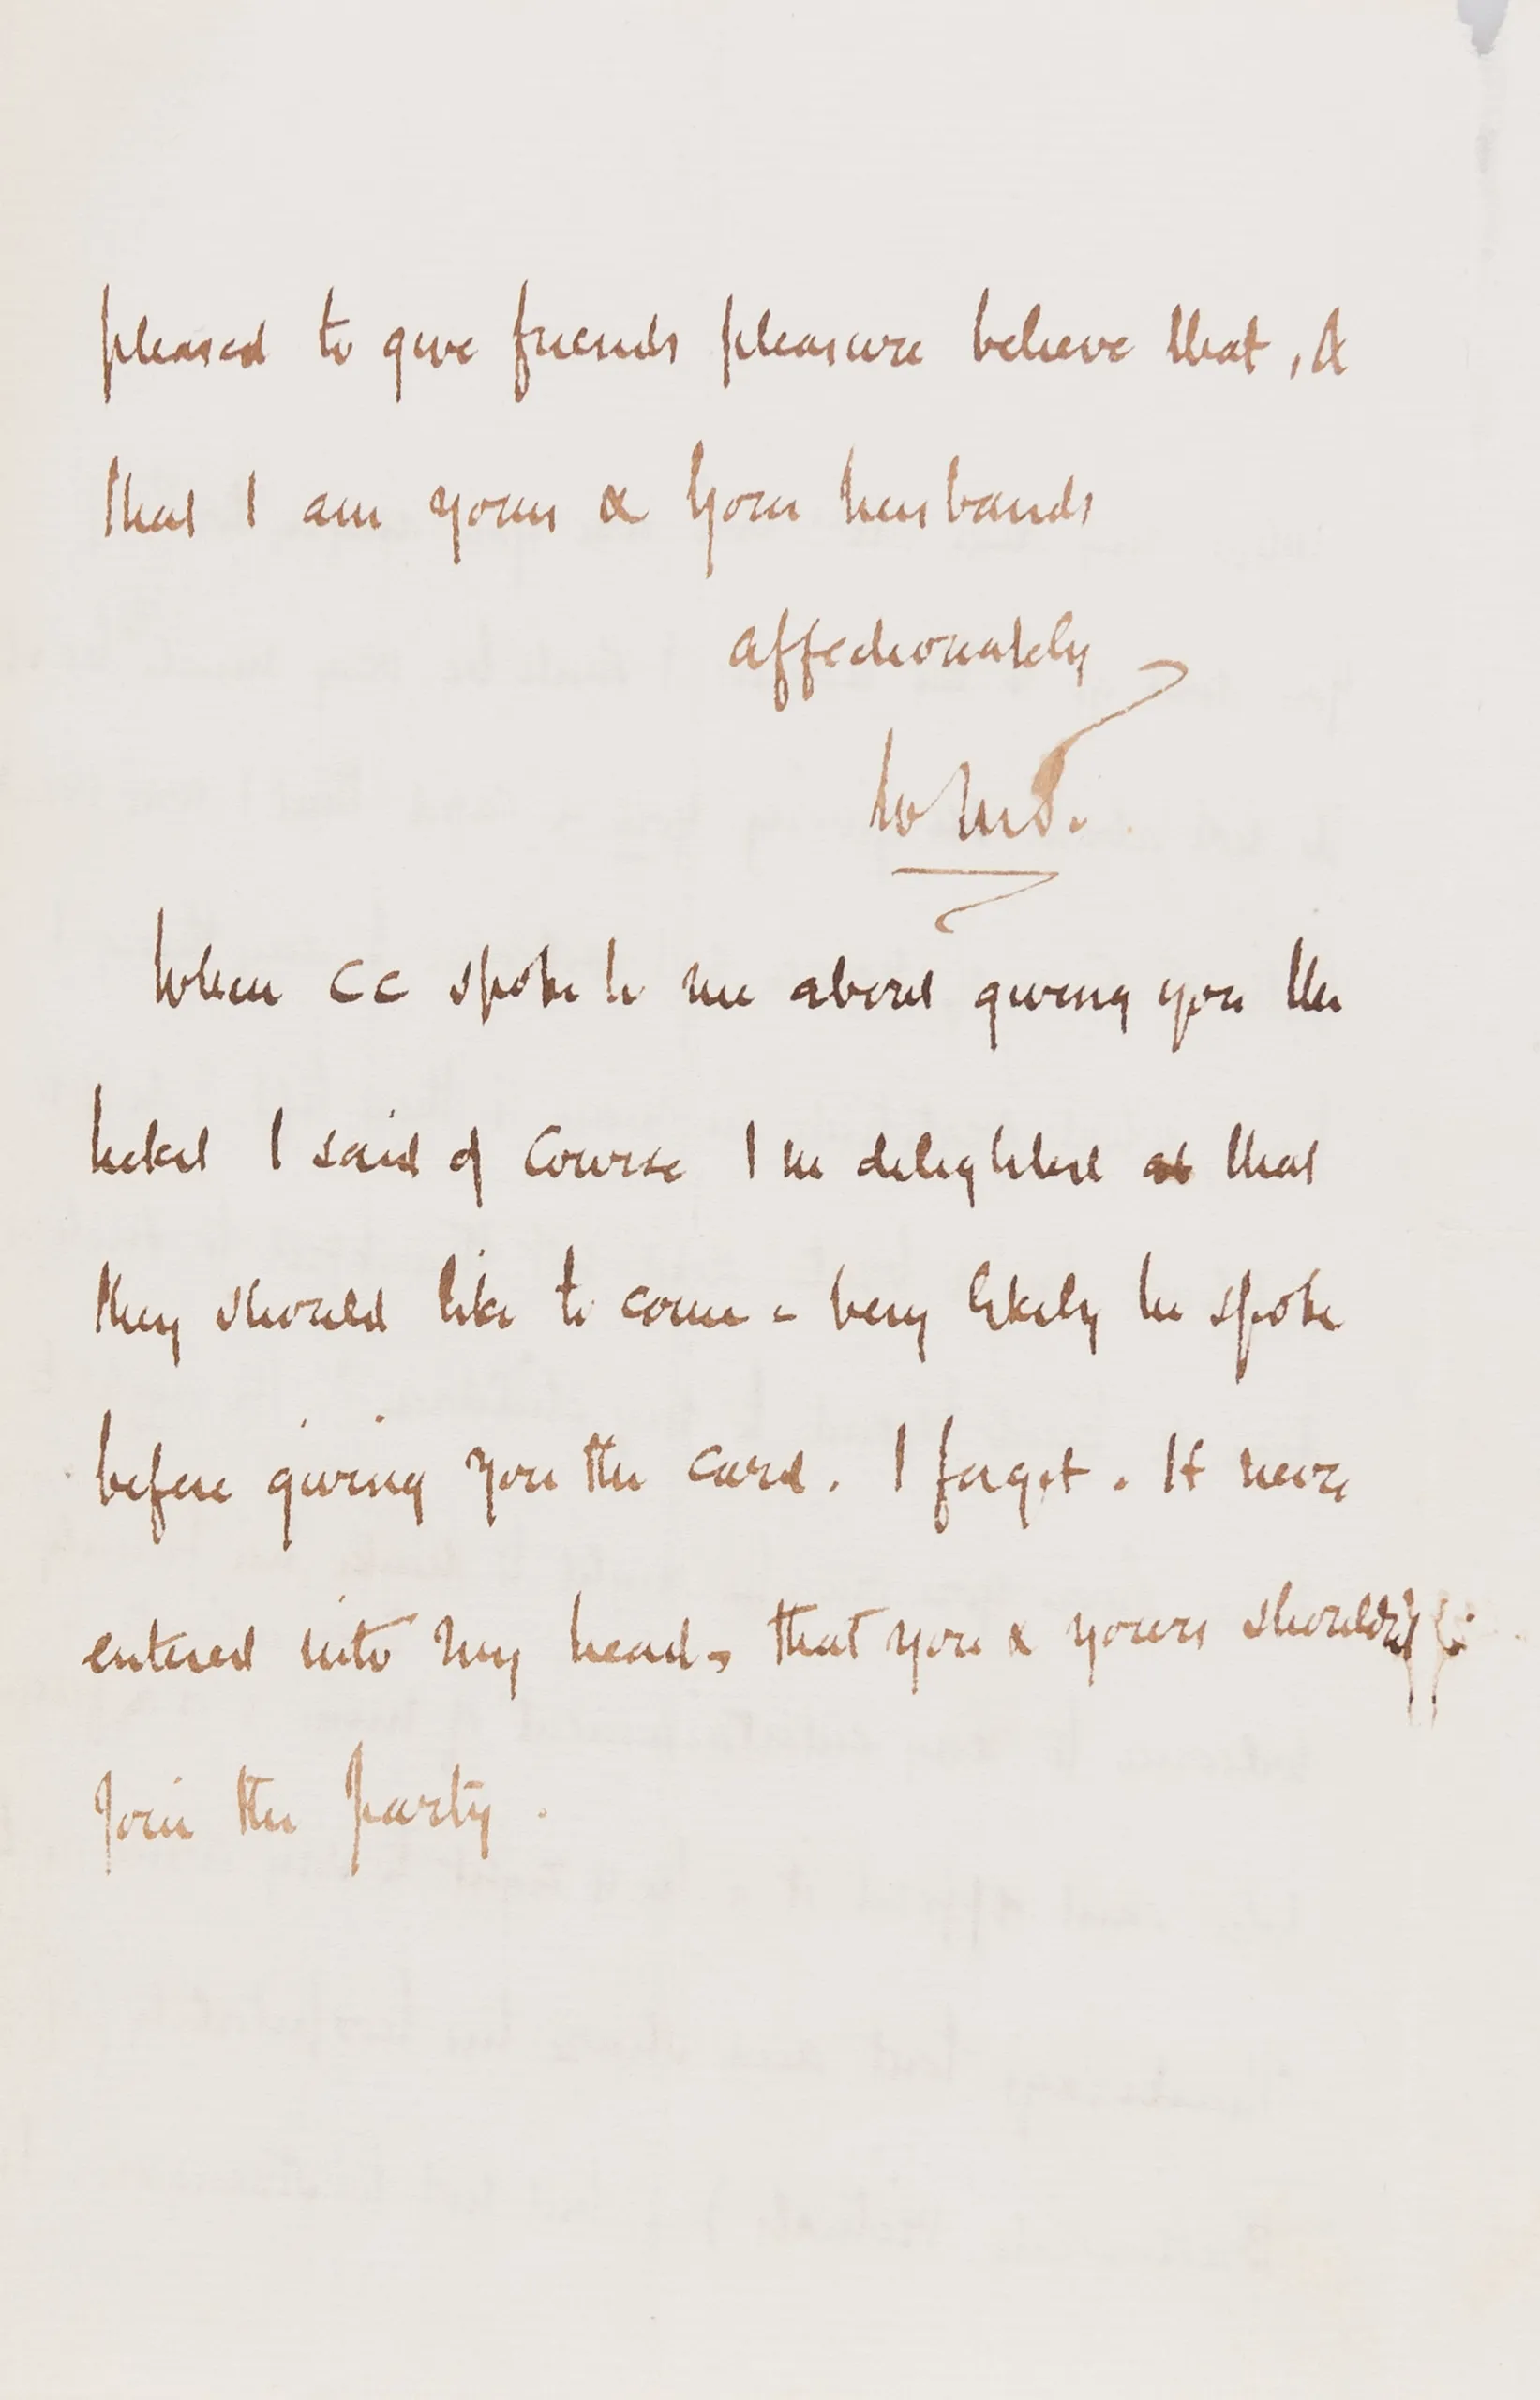 pleased to give friends pleasure believe that, &
that I am yours & your husbands
affectionately
WMT.
When CC spoke to me about giving you the
ticket I said of course I m delighted that
they should like to come - very likely he spoke
before giving you the card. I forget. It never
entered into my head, that you & yours should
join the party.